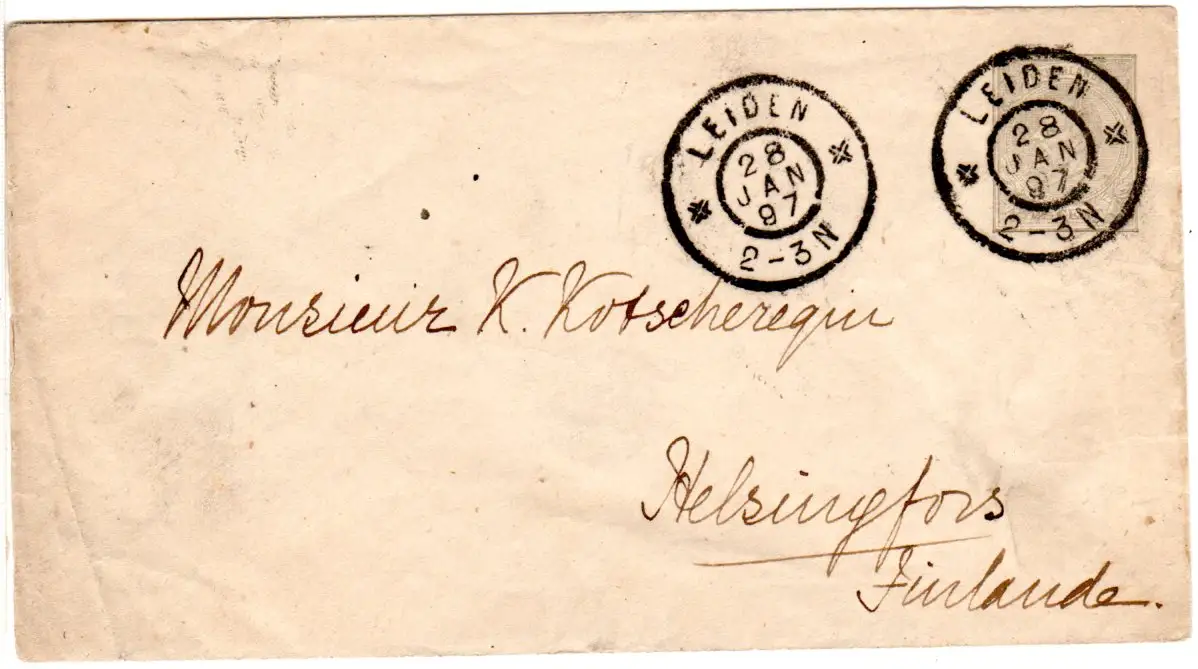 LEIDEN
28
JAN
97
2-3N
LEIDEN
28
JAN
97
2-3N
Monsieur K. Kotscheregin
Helsingfors
Finlande.